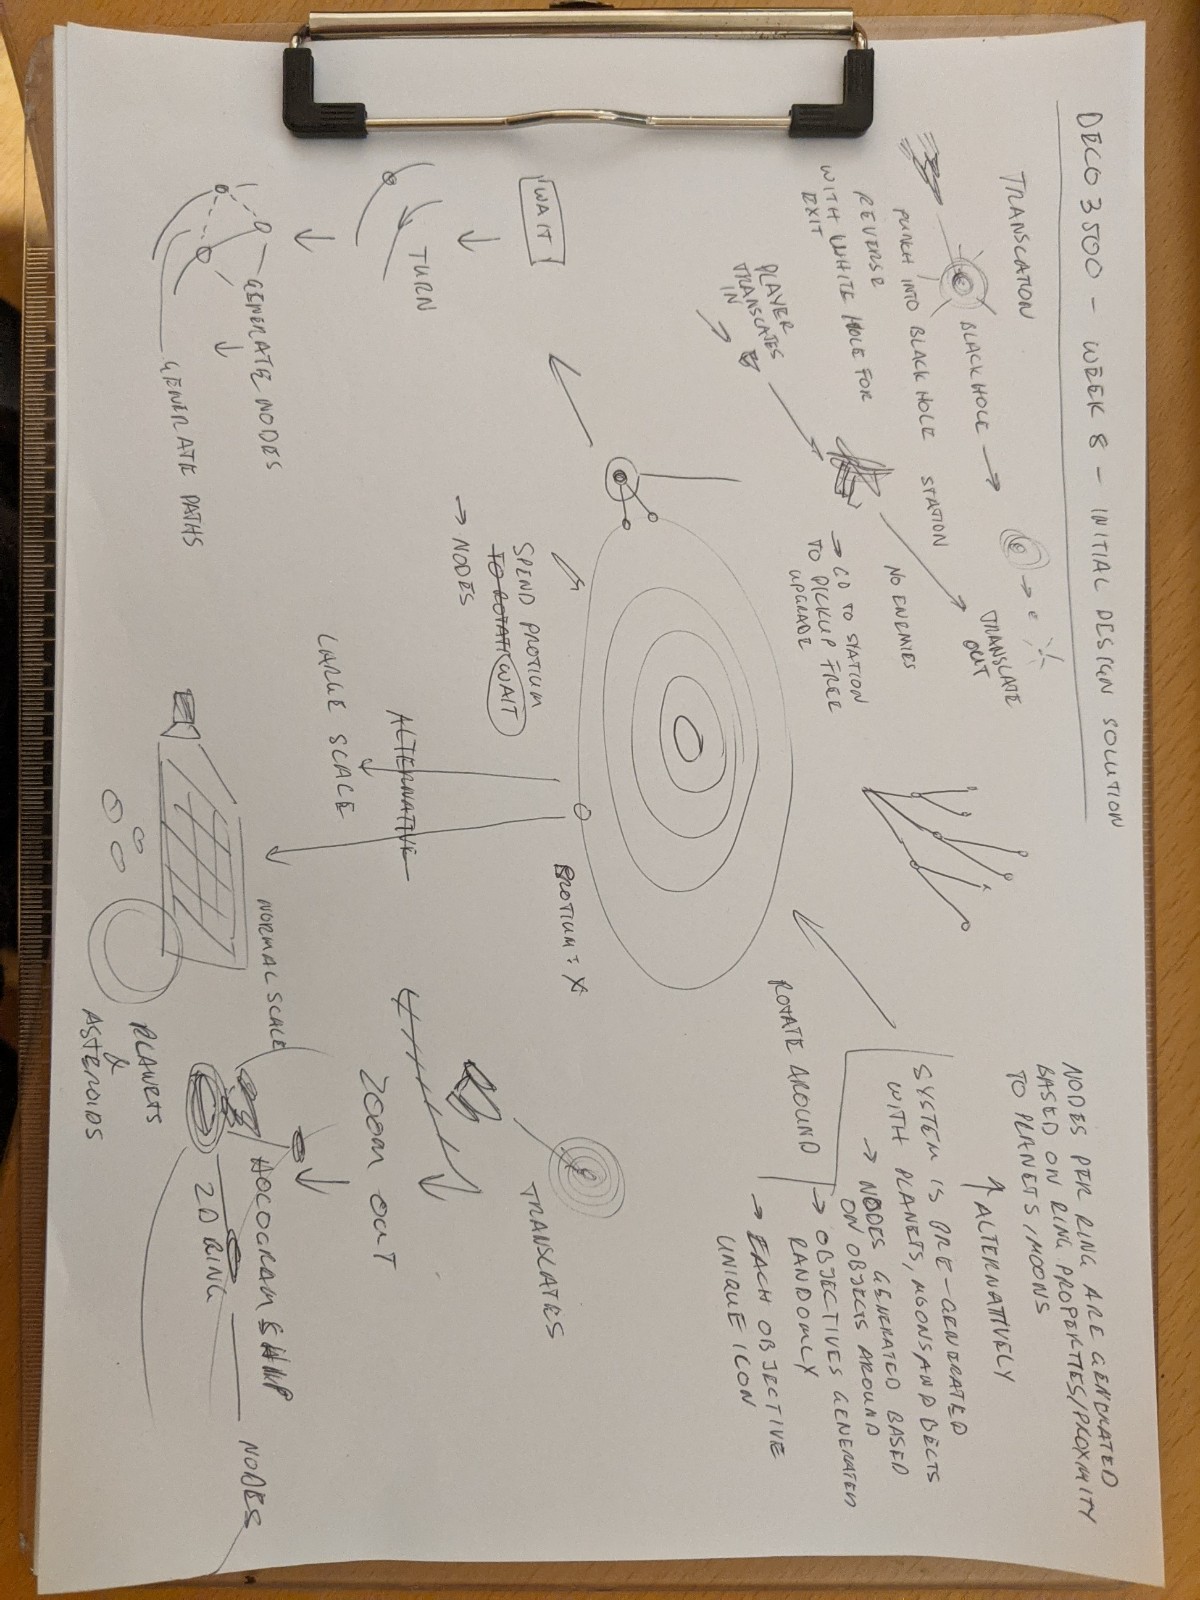 DECO3500 - WEEK 8 - INITIAL DESIGN SOLUTION
TRANSLATION
BLACK HOLE
TRANSLATE
OUT
PUNCH INTO BLACK HOLE
REVERSE
WITH WHITE HOLE FOR
EXIT
STATION
NO ENEMIES
→ GO TO STATION
TO PICKUP FREE
UPGRADE
PLAYER
TRANSLATES
IN
NODES PER RING ARE GENERATED
BASED ON RING PROPERTIES/PROXIMITY
TO PLANETS/MOONS
ALTERNATIVELY
SYSTEM IS PRE-GENERATED
WITH PLANETS, MOONS AND BELTS
→ NODES GENERATED BASED
ON OBJECTS AROUND
→ OBJECTIVES GENERATED
RANDOMLY
→ EACH OBJECTIVE
UNIQUE ICON
ROTATE AROUND
PROTIUM: X
SPEND PROTIUM
TO ROTATE WAIT
→ NODES
WAIT
TURN
GENERATE NODES
GENERATE PATHS
ALTERNATIVE
LARGE SCALE
NORMAL SCALE
PLANETS
&
ASTEROIDS
TRANSLATES
ZOOM OUT
HOLOGRAM SHIP
2D RING
NODES